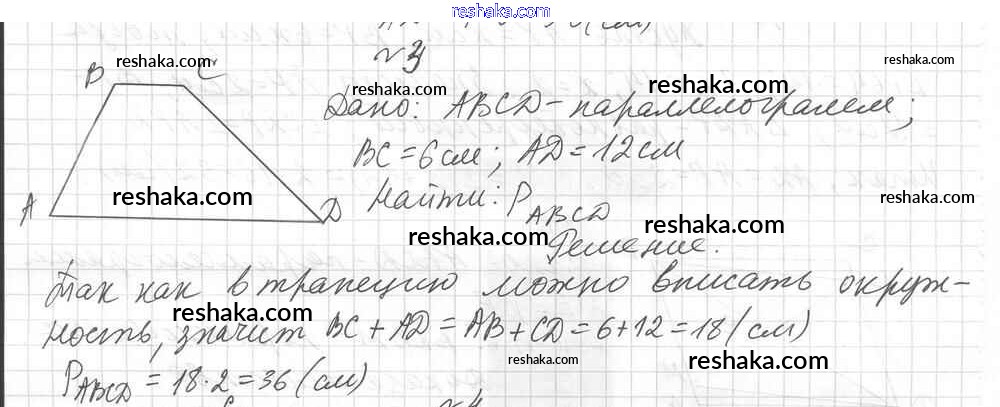 reshaka.com
№3
B C
reshaka.com
reshaka.com
reshaka.com
reshaka.com
Дано: ABCD - параллелограмм;
BC = 6 см; AD = 12 см
A D
reshaka.com
Найти: P ABCD
reshaka.com
reshaka.com
reshaka.com
Решение.
Так как в трапецию можно вписать окруж-
reshaka.com
reshaka.com
ность, значит BC + AD = AB + CD = 6 + 12 = 18 (см)
reshaka.com
reshaka.com
P ABCD = 18 · 2 = 36 (см)
№4